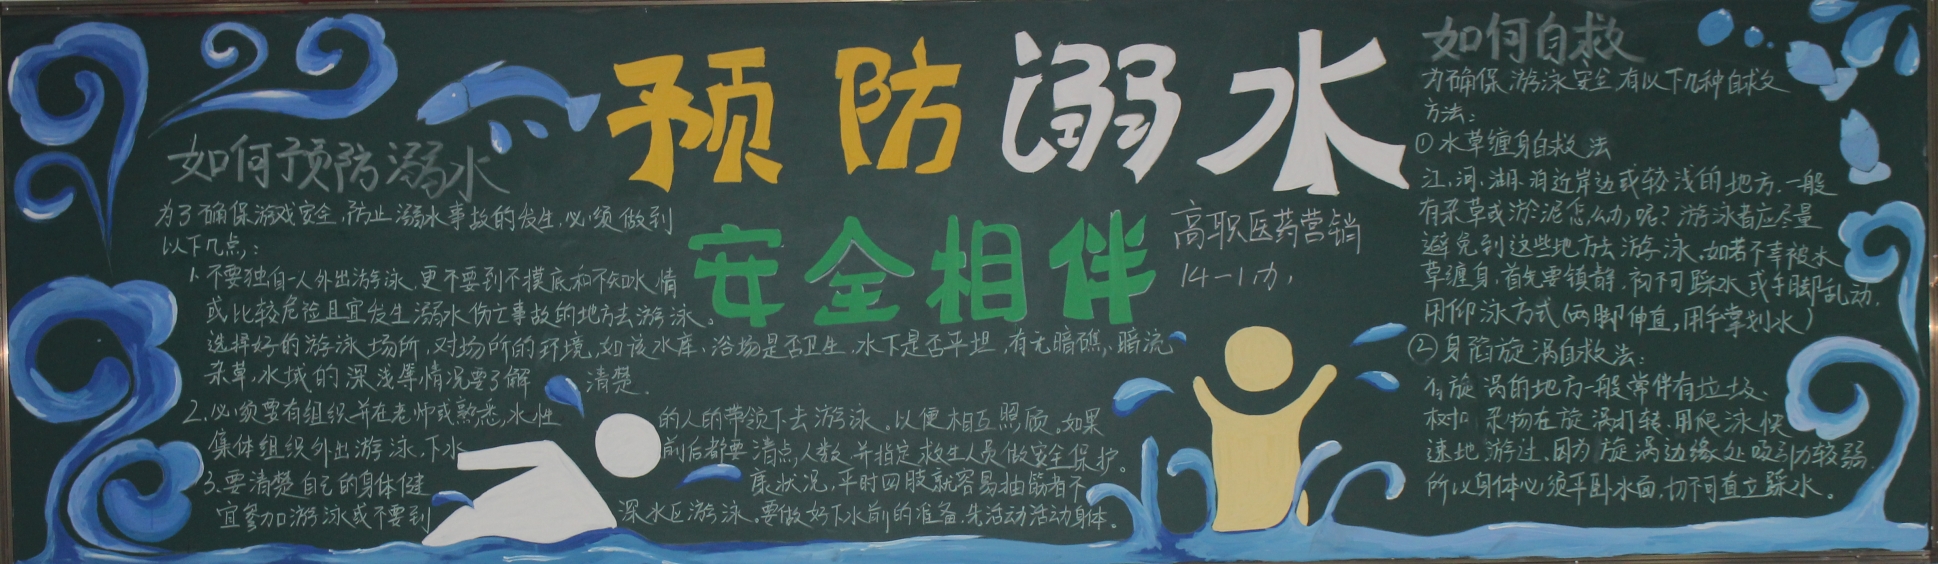 预防溺水
安全相伴
高职医药营销
14-1办,
如何预防溺水
为了确保游戏安全,防止溺水事故的发生,必须做到
以下几点,:
1.不要独自一人外出游泳,更不要到不摸底和不知水情
或比较危险且宜发生溺水伤亡事故的地方去游泳。
选择好的游泳场所,对场所的环境,如该水库、浴场是否卫生,水下是否平坦,有无暗礁、暗流
杂草,水域的深浅等情况要了解清楚.
2.必须要有组织并在老师或熟悉水性的人的带领下去游泳。以便相互照顾。如果
集体组织外出游泳,下水前后都要清点人数,并指定救生人员做安全保护。
3.要清楚自己的身体健康状况,平时四肢就容易抽筋者不
宜参加游泳或不要到深水区游泳。要做好下水前的准备,先活动活动身体。
如何自救
为确保游泳安全,有以下几种自救
方法:
①水草缠身自救法
江、河、湖泊近岸边或较浅的地方.一般
有杂草或淤泥怎么办呢?游泳者应尽量
避免到这些地方去游泳.如若不幸被水
草缠身,首先要镇静,切不可踩水或手脚乱动,
用仰泳方式(两脚伸直,用手掌划水)
②身陷旋涡自救法:
有旋涡的地方一般常伴有垃圾
树叶杂物在旋涡打转.用爬泳快
速地游过.因为旋涡边缘处吸引力较弱.
所以身体必须平卧水面,切不可直立踩水。